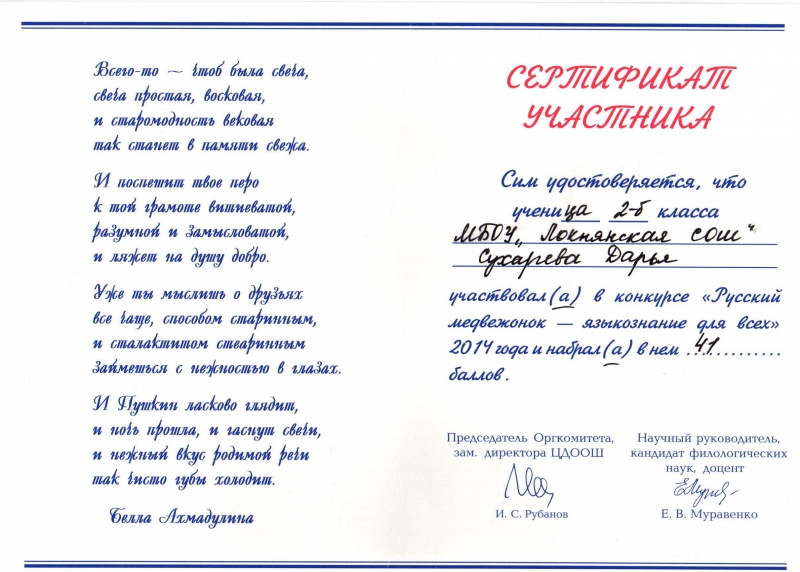 Всего-то — чтоб была свеча,
свеча простая, восковая,
и старомодность вековая
так станет в памяти свежа.
И поспешит твое перо
к той грамоте витиеватой,
разумной и замысловатой,
и ляжет на душу добро.
Уже ты мыслишь о друзьях
все чаще, способом старинным,
и сталактитом стеаринным
займешься с нежностью в глазах.
И Пушкин ласково глядит,
и ночь прошла, и гаснут свечи,
и нежный вкус родимой речи
так чисто губы холодит.
Белла Ахмадулина
СЕРТИФИКАТ
УЧАСТНИКА
Сим удостоверяется, что
ученица 2-б класса
МБОУ „Локнянская СОШ“
Сухарева Дарья
участвовал(а) в конкурсе «Русский
медвежонок — языкознание для всех»
2014 года и набрал(а) в нем ...41............
баллов.
Председатель Оргкомитета,
зам. директора ЦДООШ
И. С. Рубанов
Научный руководитель,
кандидат филологических
наук, доцент
Е. В. Муравенко